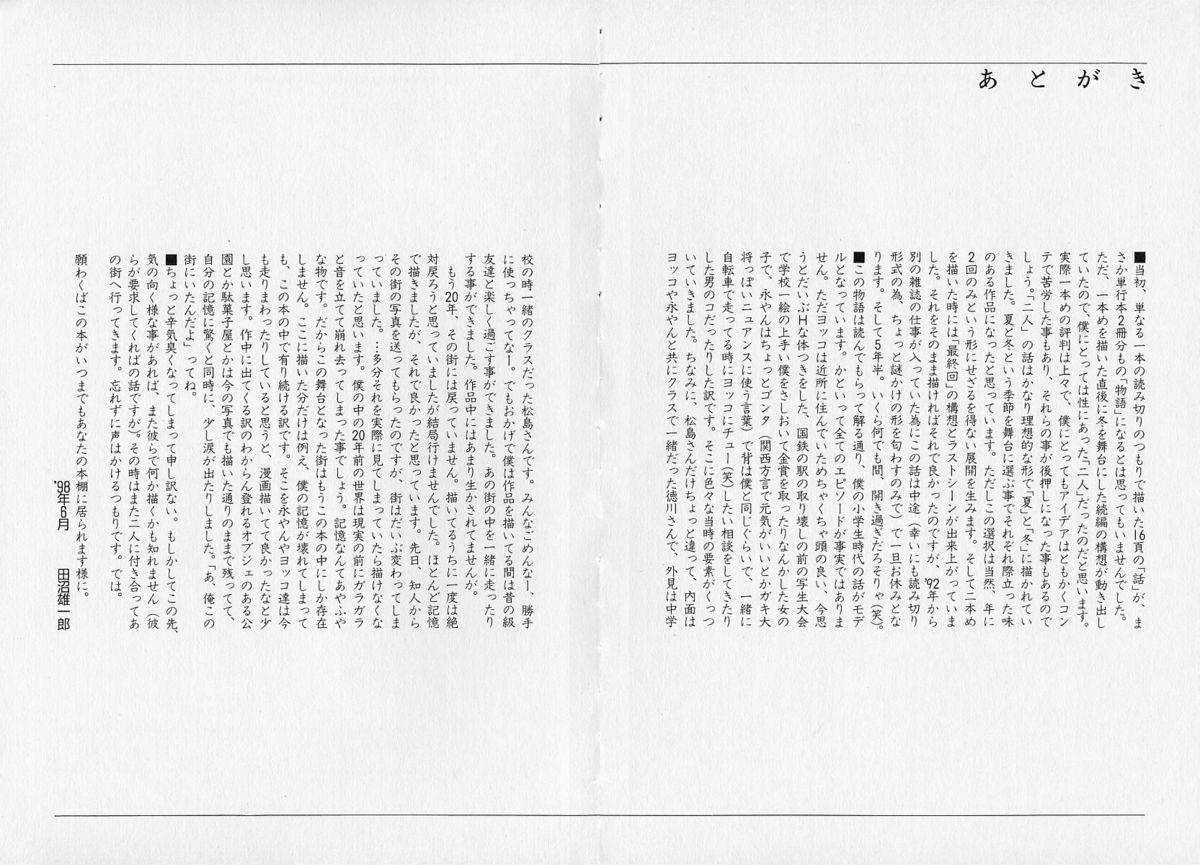 あとがき
■当初、単なる一本の読み切りのつもりで描いた16頁の「話」が、ま
さか単行本2冊分もの「物語」になるとは思ってもいませんでした。
ただ、一本めを描いた直後に冬を舞台にした続編の構想が動き出し
ていたので、僕にとっては性にあった「二人」だったのだと思います。
実際一本めの評判は上々で、僕にとってもアイデアはともかくコン
テで苦労した事もあり、それらの事が後押しになった事もあるので
しょう。「二人」の話はかなり理想的な形で「夏」と「冬」に描かれてい
きました。夏と冬という季節を舞台に選ぶ事でそれぞれ際立った味
のある作品になったと思っています。ただしこの選択は当然、年に
2回のみという形にせざるを得ない展開を生みます。そして二本め
を描いた時には「最終回」の構想とラストシーンが出来上がっていま
した。それをそのまま描ければそれで良かったのですが、'92年から
別の雑誌の仕事が入っていた為にこの話は中途（幸いにも読み切り
形式の為、ちょっと謎かけの形を匂わすのみで）で一旦お休みとな
ります。そして5年半。いくら何でも間、開き過ぎだろそりゃ（笑）。
■この物語は読んでもらって解る通り、僕の小学生時代の話がモデ
ルとなっています。かといって全てのエピソードが事実ではありま
せん。ただヨッコは近所に住んでいためちゃくちゃ頭の良い、今思
うとだいぶHな体つきをした、国鉄の駅の取り壊しの前の写生大会
で学校一絵の上手い僕をさしおいて金賞を取ったりなんかした女の
子で、永やんはちょっとゴンタ（関西方言で元気がいいとかガキ大
将っぽいニュアンスに使う言葉）で背は僕と同じぐらいで、一緒に
自転車で走ってる時にヨッコにチュー（笑）したい相談をしてきたり
した男のコだったりした訳です。そこに色々な当時の要素がくっつ
いていきました。ちなみに、松島さんだけちょっと違って、内面は
ヨッコや永やんと共にクラスで一緒だった徳川さんで、外見は中学
校の時一緒のクラスだった松島さんです。みんなごめんなー、勝手
に使っちゃってなー。でもおかげで僕は作品を描いてる間は昔の級
友達と楽しく過ごす事ができました。あの街の中を一緒に走ったり
する事ができました。作品中にはあまり生かされてませんが。
　もう20年、その街には戻っていません。描いてるうちに一度は絶
対戻ろうと思っていましたが結局行けませんでした。ほとんど記憶
で描きましたが、それで良かったと思っています。先日、知人から
その街の写真を送ってもらったのですが、街はだいぶ変わってしま
っていました。…多分それを実際に見てしまっていたら描けなくな
っていたと思います。僕の中の20年前の世界は現実の前にガラガラ
と音を立てて崩れ去ってしまった事でしょう。記憶なんてあやふや
な物です。だからこの舞台となった街はもうこの本の中にしか存在
しません。ここに描いた分だけは例え、僕の記憶が壊れてしまって
も、この本の中で有り続ける訳です。そこを永やんやヨッコ達は今
も走りまわったりしていると思うと、漫画描いてて良かったなと少
し思います。作中に出てくる訳のわからん登れるオブジェのある公
園とか駄菓子屋とかは今の写真でも描いた通りのままで残ってて、
自分の記憶に驚くと同時に、少し涙が出たりしました。「あ、俺この
街にいたんだよ」ってね。
■ちょっと辛気臭くなってしまって申し訳ない。もしかしてこの先、
気の向く様な事があれば、また彼らで何か描くかも知れません（彼
らが要求してくればの話ですが）。その時はまた二人に付き合ってあ
の街へ行ってきます。忘れずに声はかけるつもりです。では。
願わくばこの本がいつまでもあなたの本棚に居られます様に。
'98年6月　田沼雄一郎